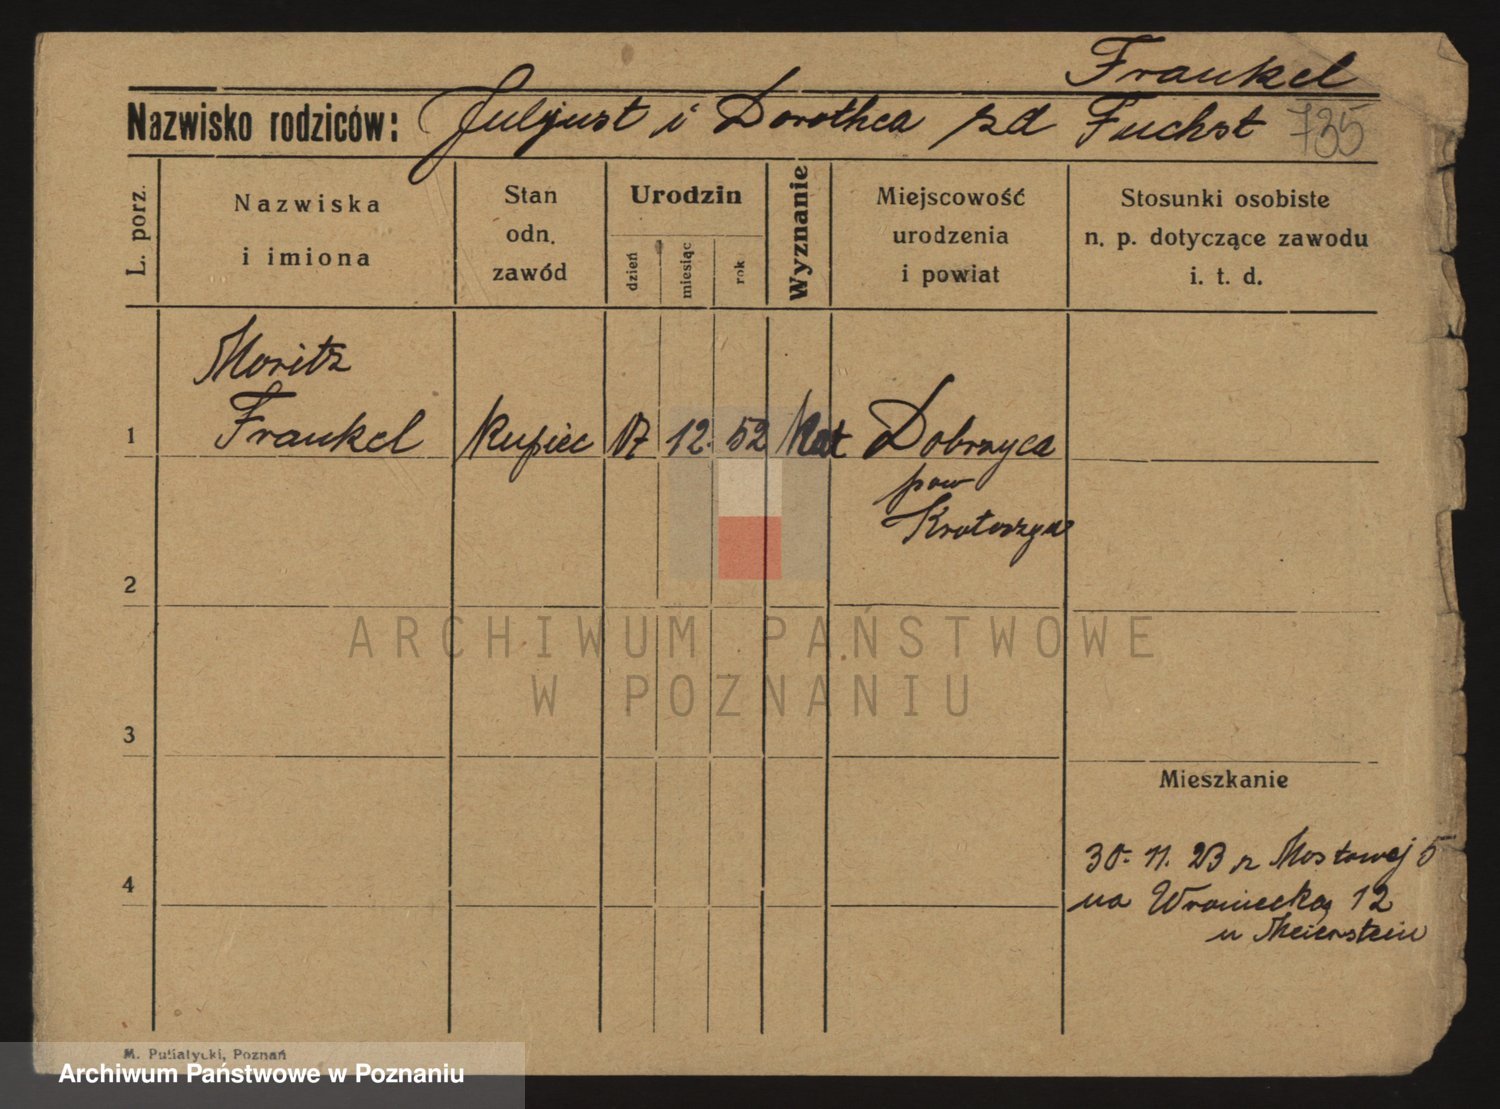 Frankel
Nazwisko rodziców: Juljust i Dorothea zd Fuchst 735
L. porz.
Nazwiska
i imiona
Stan
odn.
zawód
Urodzin
dzień
miesiąc
rok
Wyznanie
Miejscowość
urodzenia
i powiat
Stosunki osobiste
n. p. dotyczące zawodu
i. t. d.
Moritz
1 Frankel Kupiec 17 12. 52 Dobrzyca
pow
Krotoszyn
2
ARCHIWUM PAŃSTWOWE
W POZNANIU
3
Mieszkanie
4
30. 11. 23 z Mostowej 5
na Wroniecką 12
u Meierstein
M. Putiatycki, Poznań
Archiwum Państwowe w Poznaniu